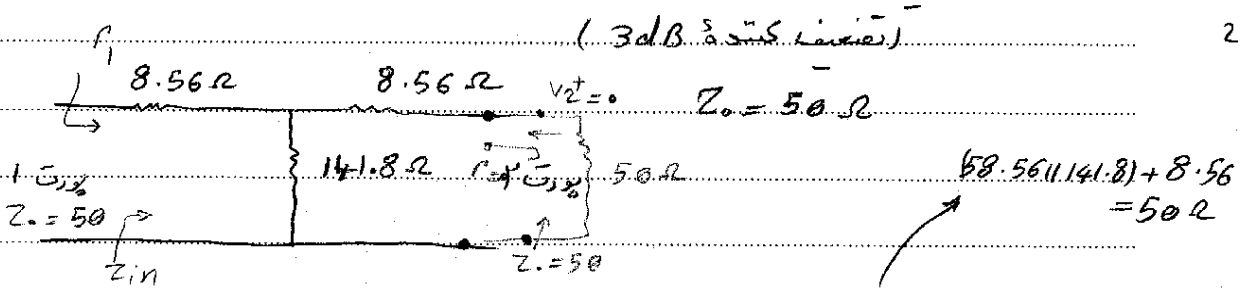 2
(تضعیف کننده 3dB)
Γ₁
8.56 Ω 8.56 Ω V₂⁺=0 Z₀ = 50 Ω
پورت 1 141.8 Ω پورت ۲ 50 Ω (58.56 || 141.8) + 8.56
Z₀ = 50 = 50 Ω
Zin Z₀ = 50